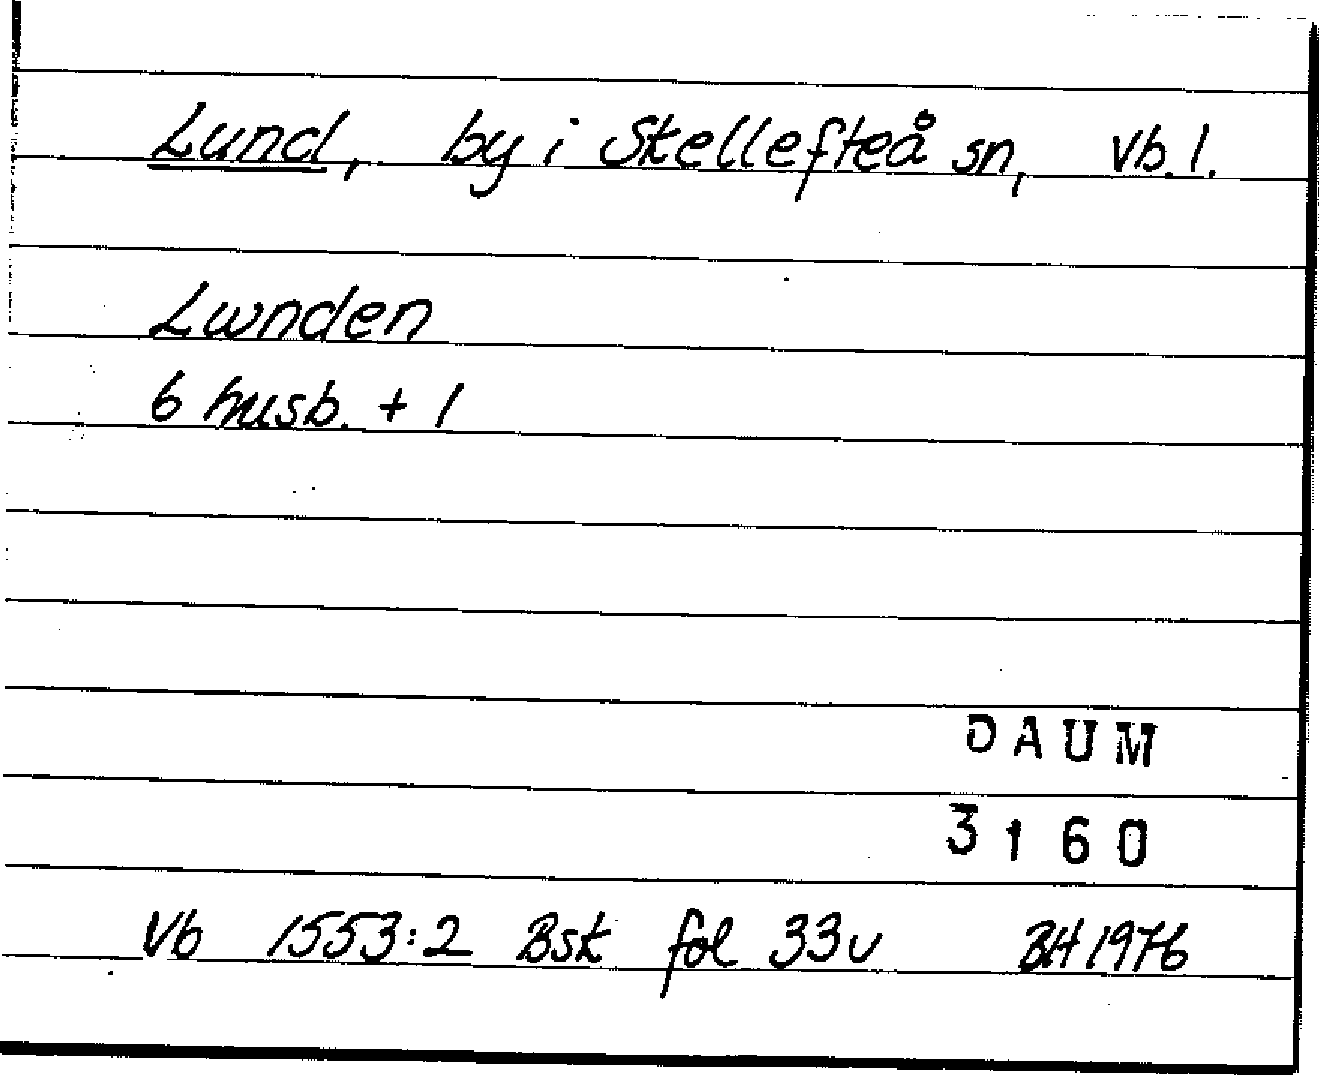 Lund, by i Skellefteå sn, Vb. l.
Lwnden
6 husb. + 1
DAUM
3160
Vb 1553:2 Bsk fol 33v BH 1976